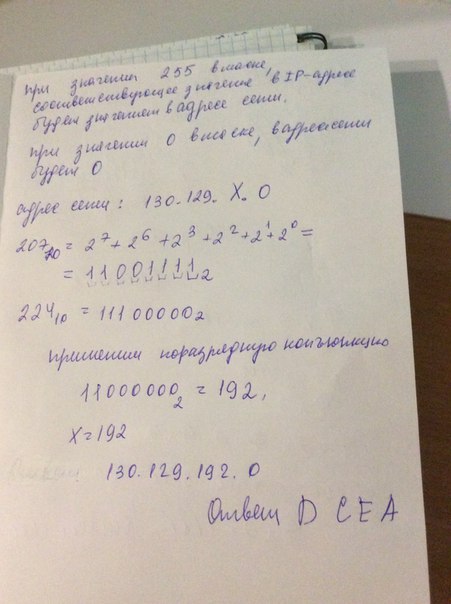 при значении 255 в маске,
соответствующее значение в IP-адресе
будет значением в адресе сети.
при значении 0 в маске, в адресе сети
будет 0
адрес сети: 130.129. X. 0
207₁₀ = 2⁷ + 2⁶ + 2³ + 2² + 2¹ + 2⁰ =
= 11001111₂
224₁₀ = 11100000₂
применим поразрядную конъюнкцию
11000000₂ = 192,
X = 192
130.129.192.0
Ответ D C E A